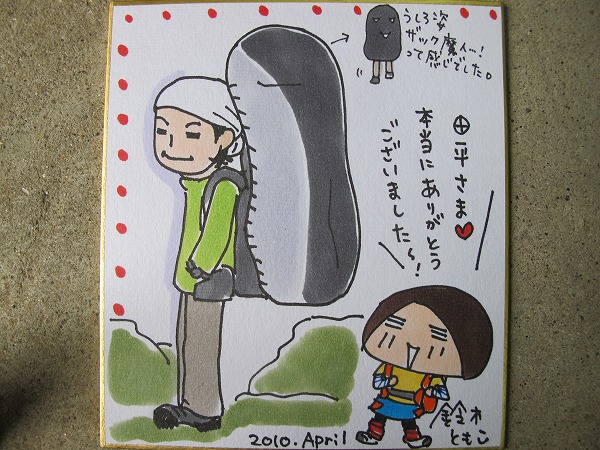 うしろ姿
ザック魔人…!
って感じでした。
田平さま♥
本当にありがとう
ございました〜!
鈴木
ともこ
2010. April